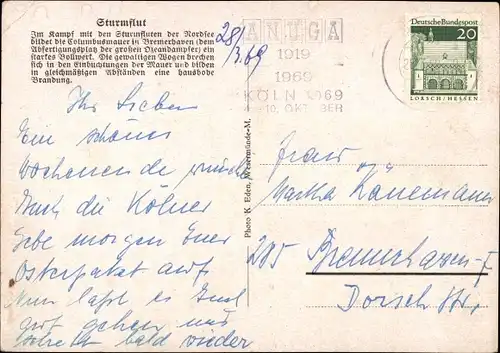 Sturmflut
Im Kampf mit den Sturmfluten der Nordsee
bildet die Columbusmauer in Bremerhaven (dem
Abfertigungsplatz der großen Ozeandampfer) ein
starkes Bollwerk. Die gewaltigen Wogen brechen
sich in den Einbuchtungen der Mauer und bilden
in gleichmäßigen Abständen eine haushohe
Brandung.
28/
3.69
ANUGA
1919
1969
KÖLN 1969
Deutsche Bundespost
20
LORSCH/HESSEN
Ihr Lieben
Ein schönes
Wochenende wünschen
Euch die Kölner
Gebe morgen Euer
Osterpaket auf.
Nun laßt es Euch
gut gehen und
schreibt bald wieder
Photo K. Eden, Wesermünde-M.
Frau
Martha Känemann
285 Bremerhaven-G
Dorsch Str.